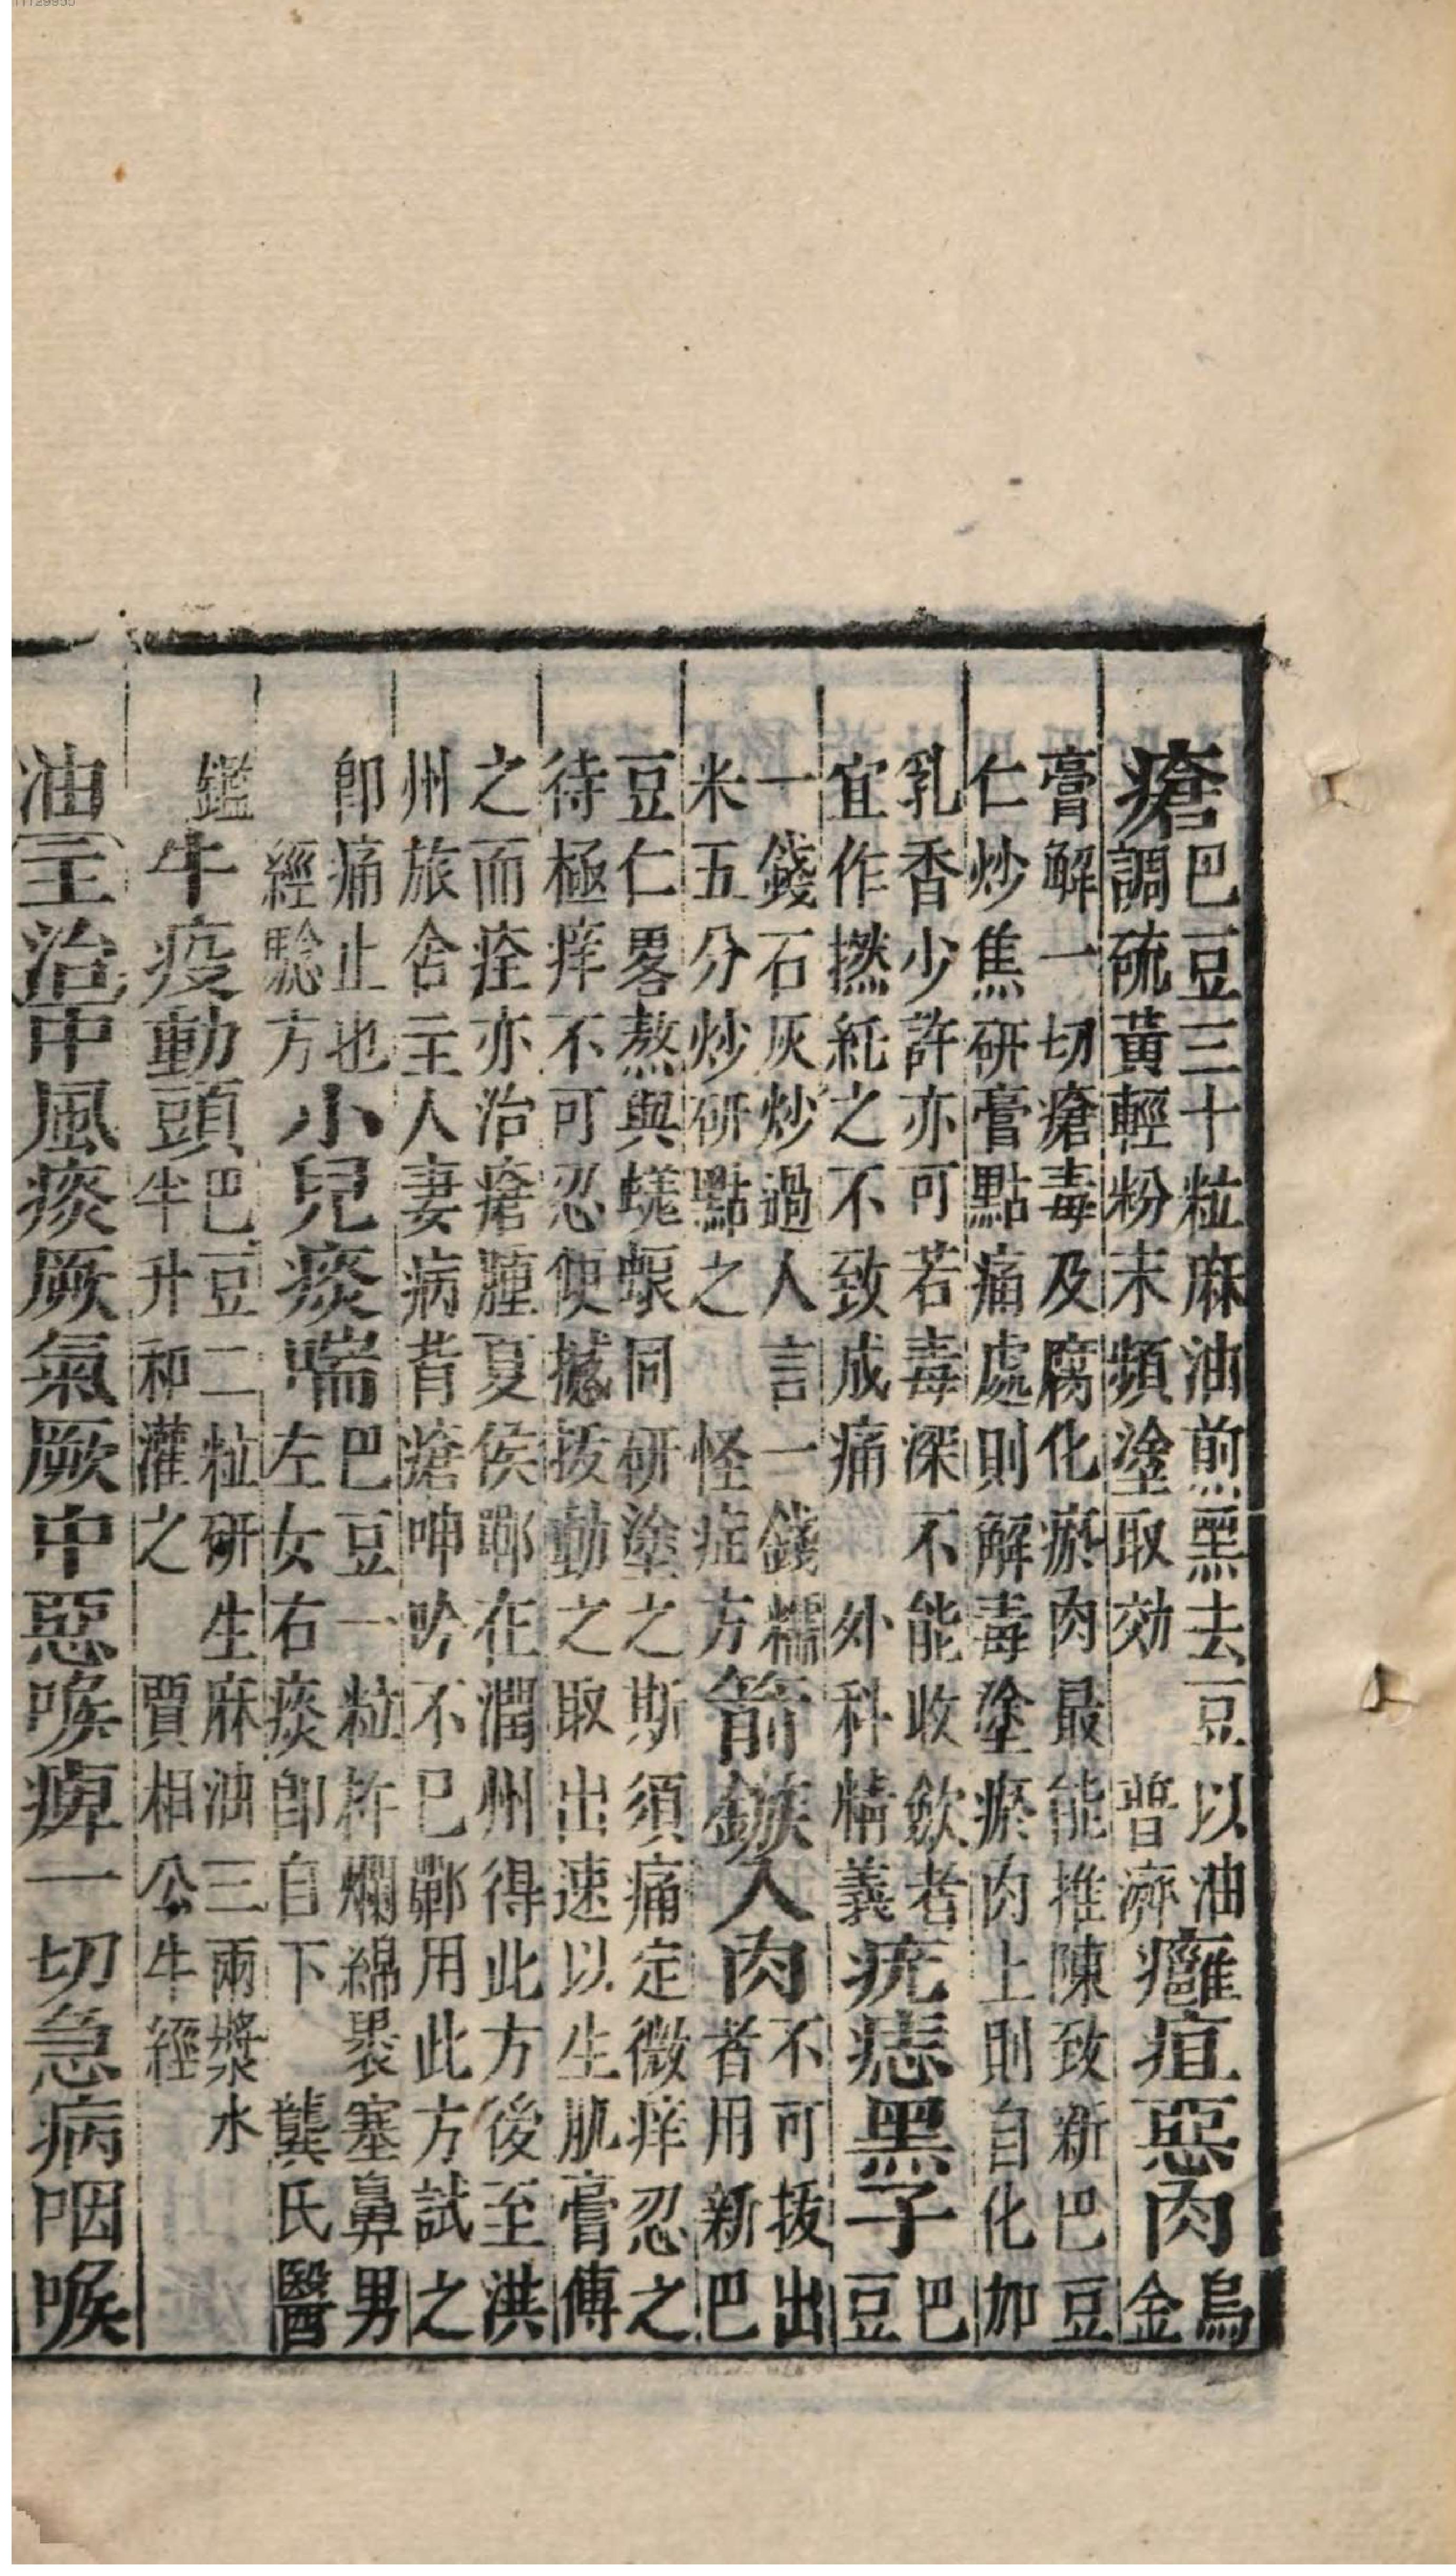 瘡
巴豆三十粒麻油煎黑去豆以油
調硫黃輕粉末頻塗取効　普濟
癰疽惡肉
烏
金
膏解一切瘡毒及腐化瘀肉最能推陳致新巴豆
仁炒焦研膏點痛處則解毒塗瘀肉上則自化加
乳香少許亦可若毒深不能收歛者
宜作撚紝之不致成痛　外科精義
疣痣黑子
巴
豆
一錢石灰炒過人言一錢糯
米五分炒研點之　怪症方
箭鏃入肉
不可拔出
者用新巴
豆仁畧熬與蜣蜋同研塗之斯須痛定微痒忍之
待極痒不可忍便撼拔動之取出速以生肌膏傅
之而痊亦治瘡腫夏侯鄲在潤州得此方後至洪
州旅舍主人妻病背瘡呻吟不已鄲用此方試之
卽痛止也
經驗方
小兒痰喘
巴豆一粒杵爛綿裹塞鼻男
左女右痰卽自下　龔氏醫
鑑
牛疫動頭
巴豆二粒研生麻油三兩漿水
半升和灌之　賈相公牛經
油主治中風痰厥氣厥中惡喉痺一切急病咽喉